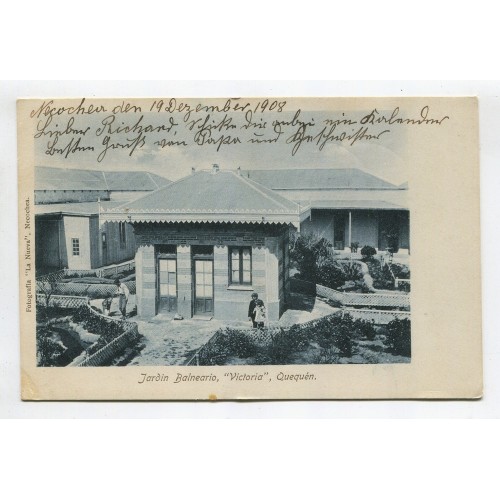 Necochea den 19 Dezember 1908
Lieber Richard, Schike dir anbei ein Kalender
Besten Gruß von Papa und Geschwister
Fotografía "La Nueva", Necochea.
Jardin Balneario, "Victoria", Quequén.